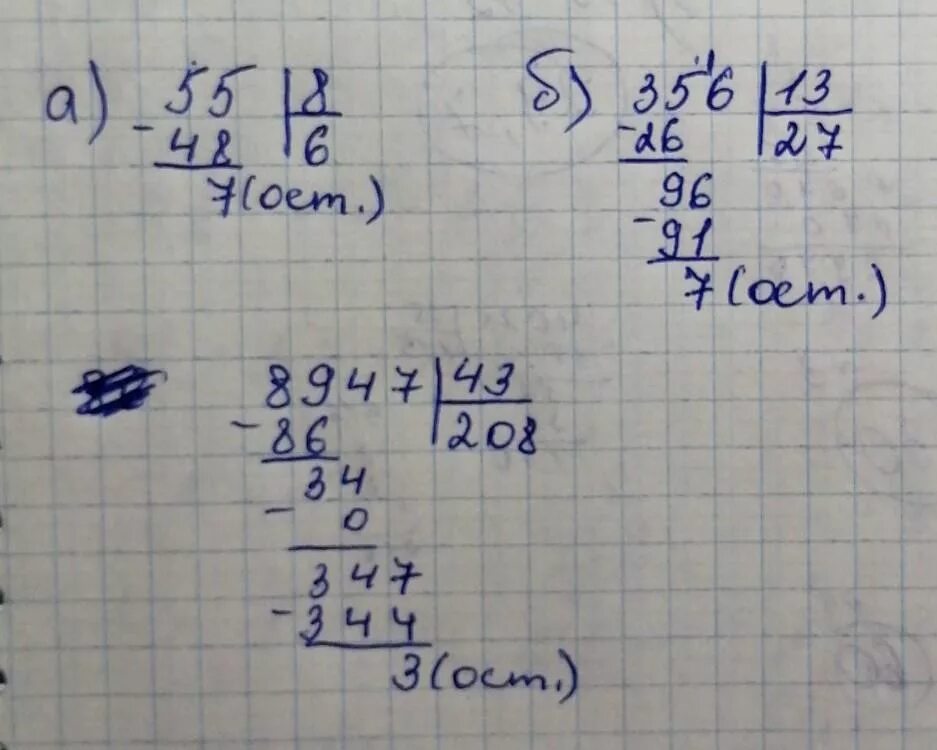 а) 55 | 8
- 48 | 6
7 (ост.)
б) 356 | 13
- 26 | 27
96
- 91
7 (ост.)
8947 | 43
- 86 | 208
34
- 0
347
- 344
3 (ост.)